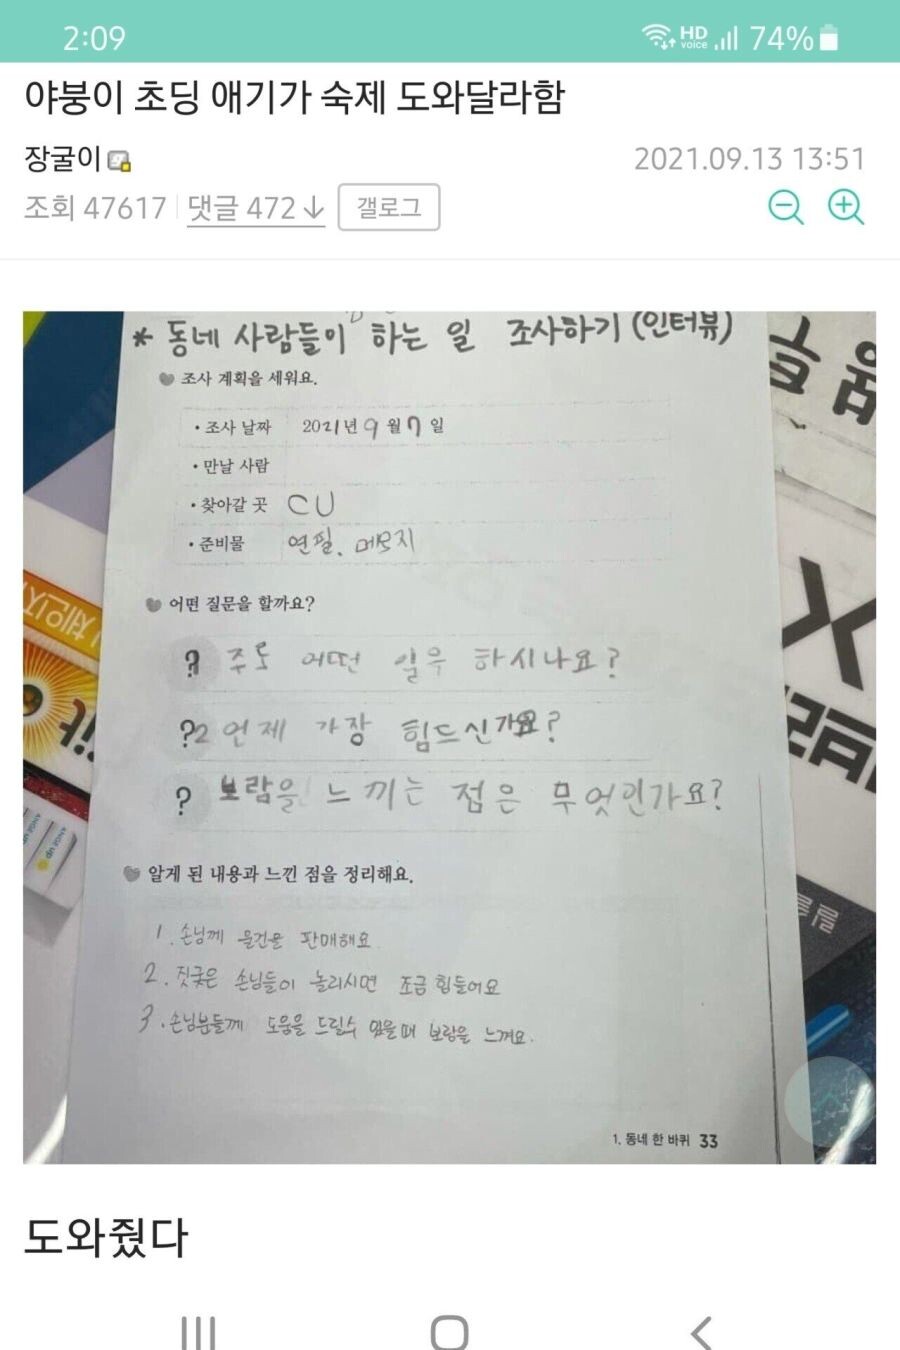 2:09 HD voice 74%
야붕이 초딩 애기가 숙제 도와달라함
장굴이 2021.09.13 13:51
조회 47617 댓글 472 갤로그
* 동네 사람들이 하는 일 조사하기 (인터뷰)
조사 계획을 세워요.
• 조사 날짜 2021년 9월 7일
• 만날 사람
• 찾아갈 곳 CU
• 준비물 연필, 메모지
어떤 질문을 할까요?
? 주로 어떤 일을 하시나요?
?2 언제 가장 힘드신가요?
? 보람을 느끼는 점은 무엇인가요?
알게 된 내용과 느낀 점을 정리해요.
1. 손님께 물건을 판매해요.
2. 짓궂은 손님들이 놀리시면 조금 힘들어요
3. 손님분들께 도움을 드릴수 있을때 보람을 느껴요.
1. 동네 한 바퀴 33
도와줬다